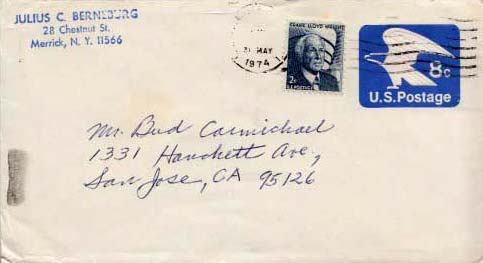 JULIUS C. BERNSBURG
28 Chestnut St.
Merrick, N. Y. 11566
FRANK LLOYD WRIGHT
2¢
U.S. POSTAGE
31 MAY
1974
8c
U.S. Postage
Mr. Bud Carmichael
1331 Hanchett Ave,
San Jose, CA 95126